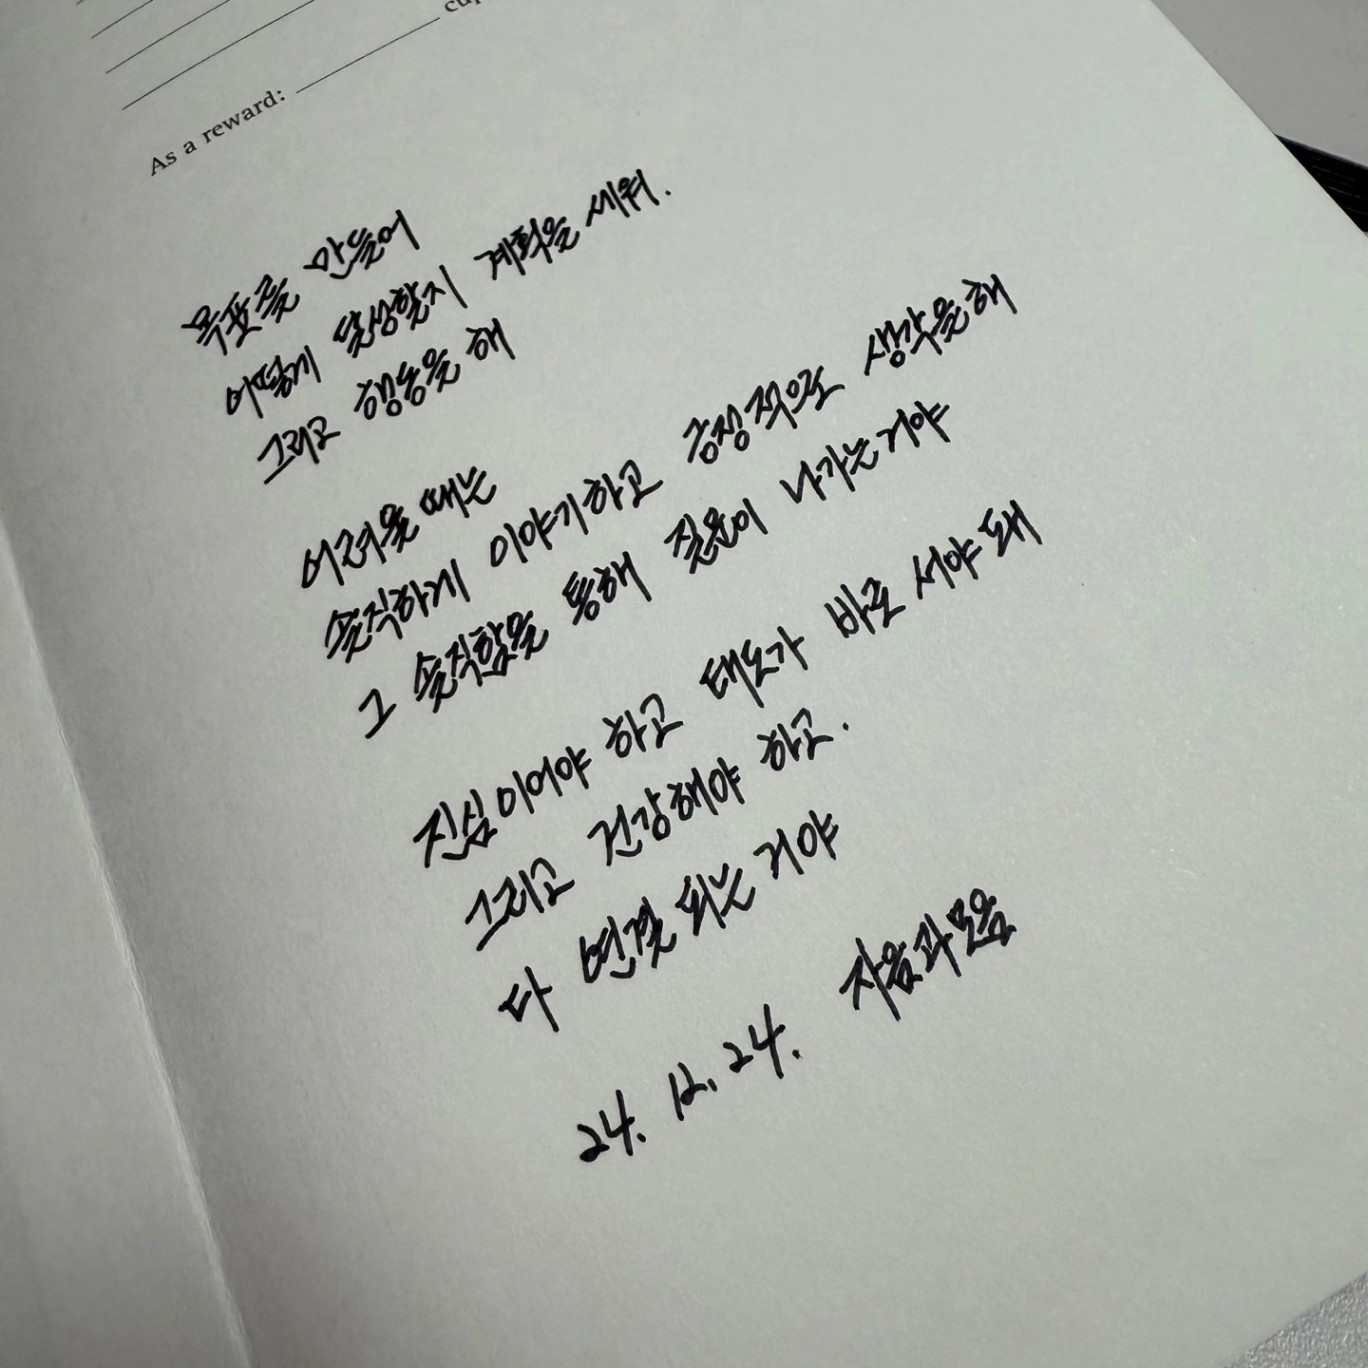 cup
As a reward:
목표를 만들어
어떻게 달성할지 계획을 세워.
그리고 행동을 해
어려울 때는
솔직하게 이야기하고 긍정적으로 생각을 해
그 솔직함을 통해 질문이 나가는거야
진심이어야 하고 태도가 바로 서야 돼
그리고 건강해야 하고.
다 연결 되는 거야
24. 12. 24. 자음과모음